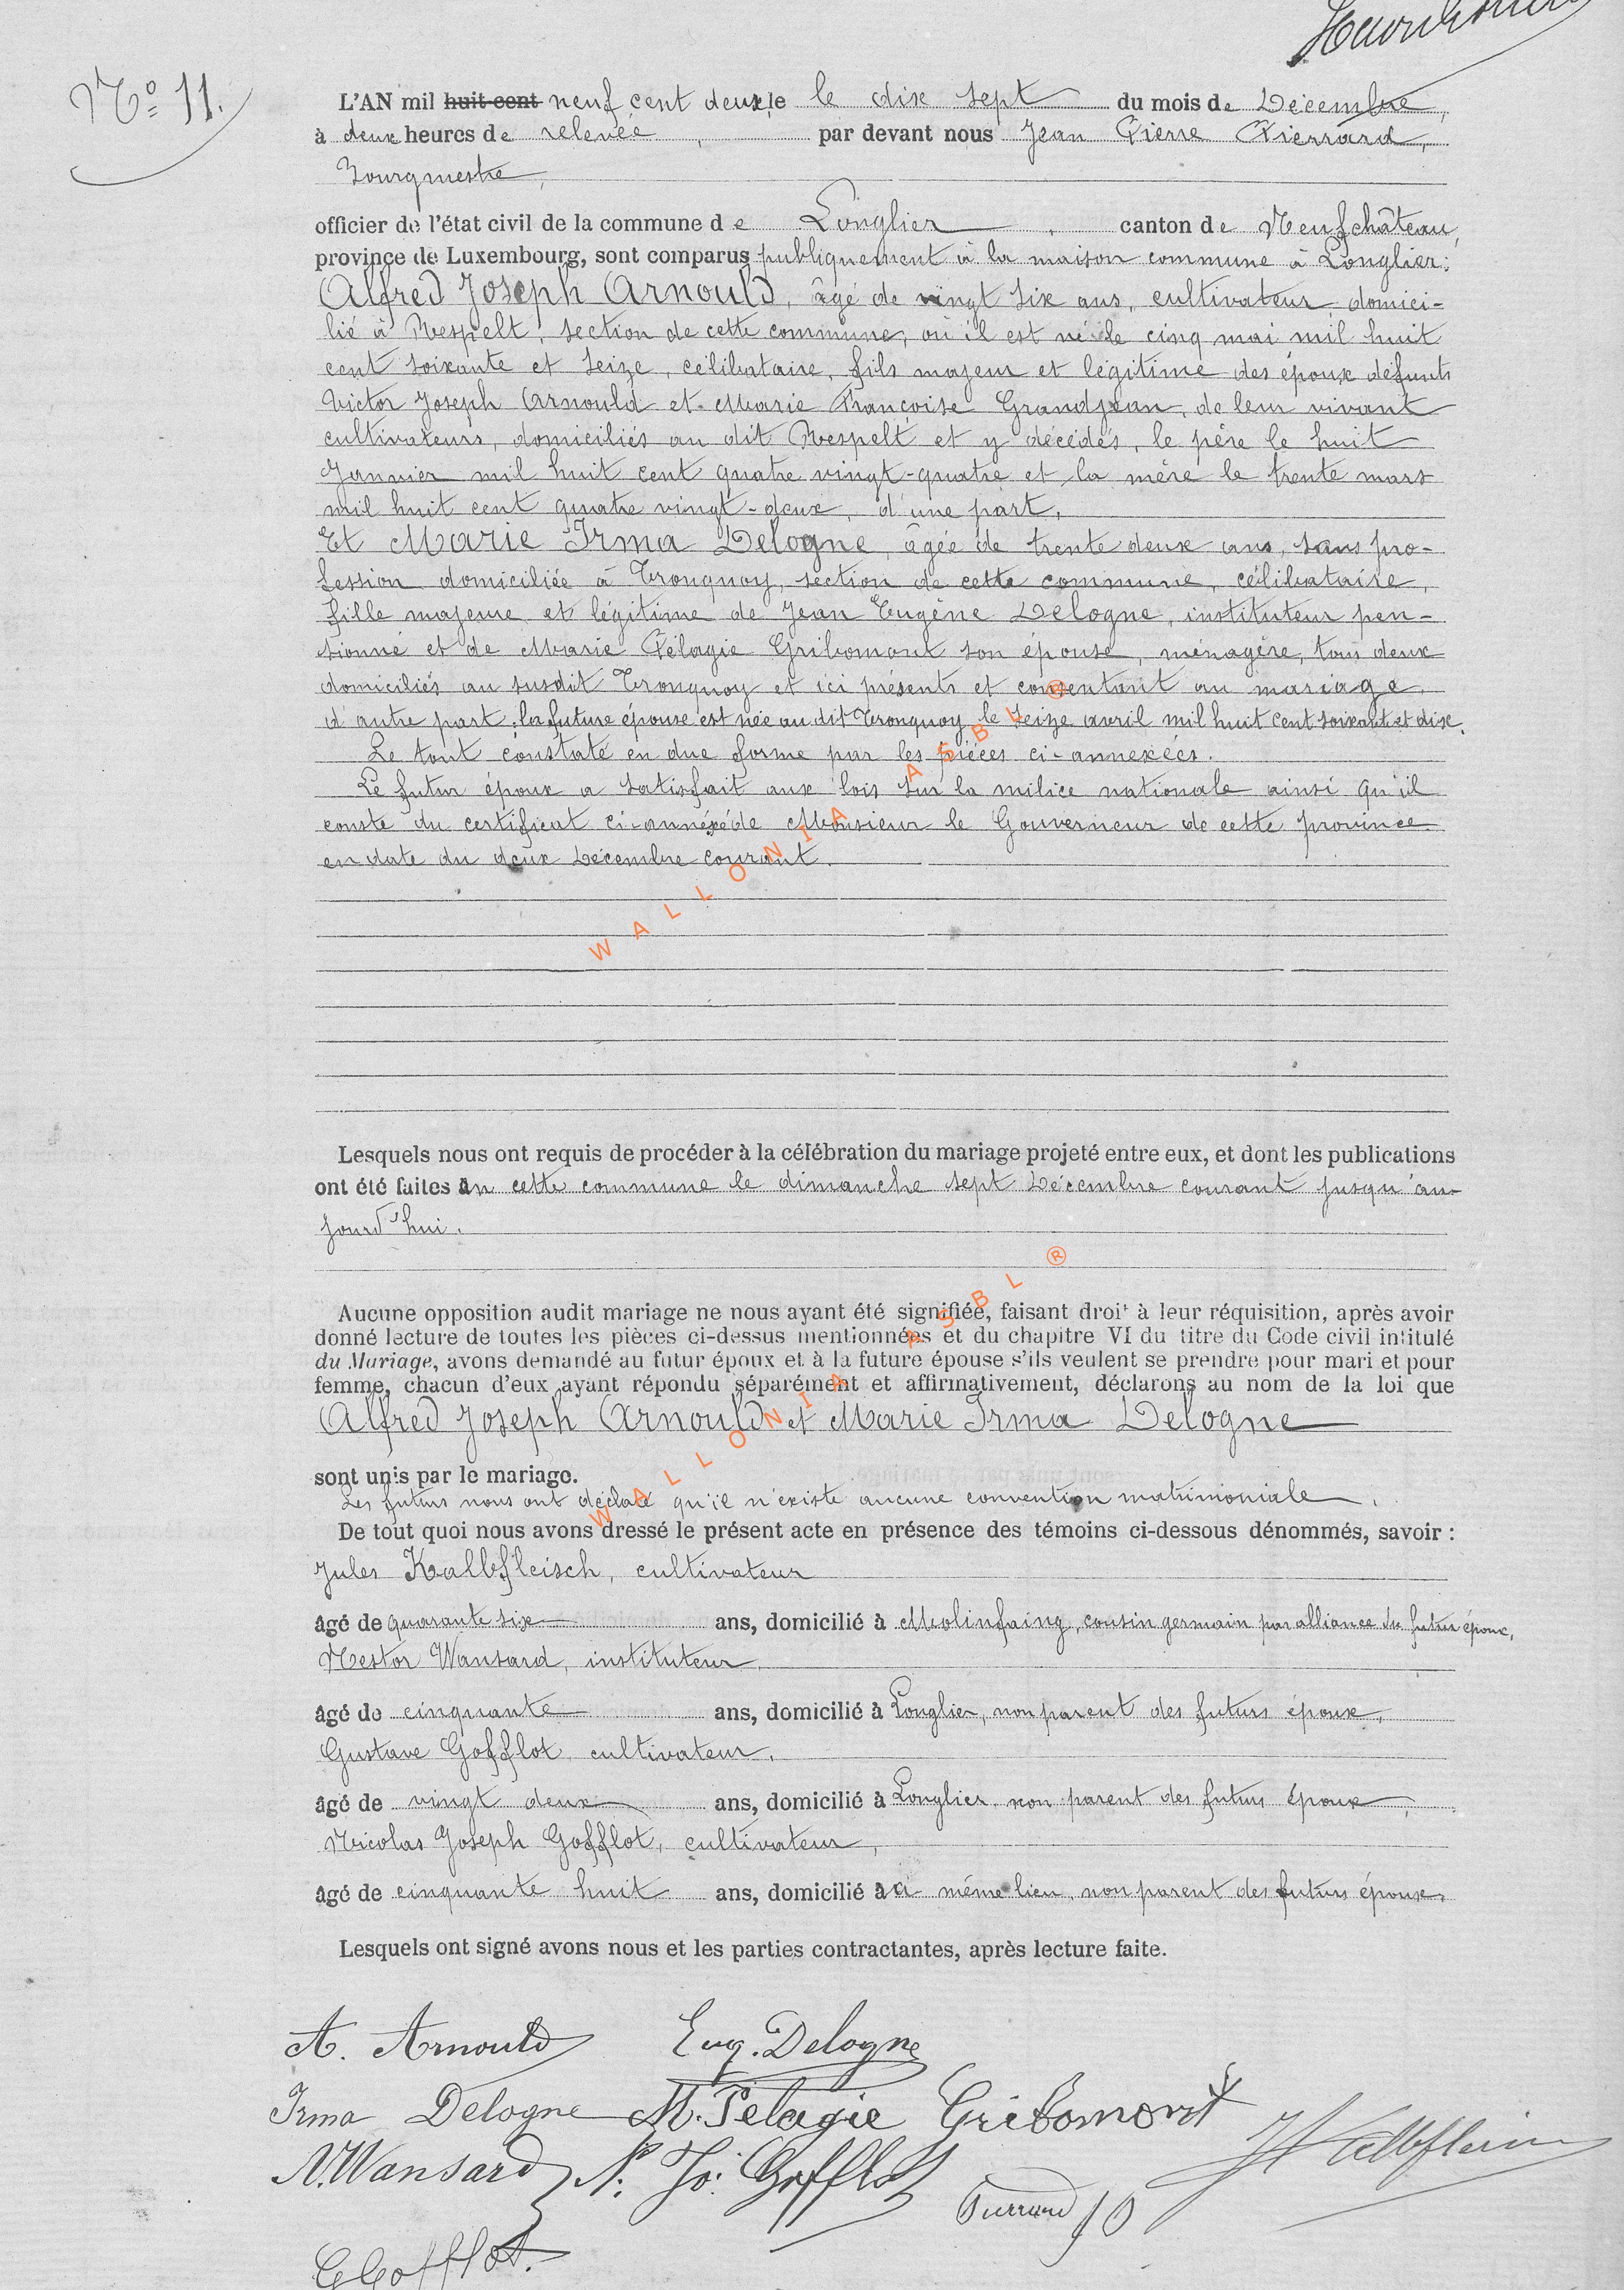 Nº 11.
L'AN mil huit cent neuf cent deux, le le dix sept du mois de Décembre,
à deux heures de relevée, par devant nous Jean Pierre Pierrard,
Bourgmestre,
officier de l'état civil de la commune de Longlier, canton de Neufchâteau,
province de Luxembourg, sont comparus publiquement à la maison commune à Longlier:
Alfred Joseph Arnould, âgé de vingt six ans, cultivateur domici-
lié à Respelt, section de cette commune, où il est né le cinq mai mil huit
cent soixante et seize, célibataire, fils majeur et légitime des époux défunts
Victor Joseph Arnould et Marie Françoise Grandjean, de leur vivant
cultivateurs, domiciliés au dit Respelt et y décédés, le père le huit
Janvier mil huit cent quatre vingt-quatre et la mère le trente mars
mil huit cent quatre vingt-deux, d'une part,
Et Marie Irma Delogne, âgée de trente deux ans, sans pro-
fession domiciliée à Tronquoy, section de cette commune, célibataire,
fille majeure et légitime de Jean Eugène Delogne, instituteur pen-
sionné et de Marie Pélagie Gribomont son épouse, ménagère, tous deux
domiciliés au susdit Tronquoy et ici présents et consentant au mariage,
d'autre part; la future épouse est née au dit Tronquoy le seize avril mil huit cent soixante et dix.
Le tout constaté en due forme par les pièces ci-annexées.
Le futur époux a satisfait aux lois sur la milice nationale ainsi qu'il
conste du certificat ci-annexé de Monsieur le Gouverneur de cette province
en date du deux Décembre courant.
WALLONIA ASBL ®
Lesquels nous ont requis de procéder à la célébration du mariage projeté entre eux, et dont les publications
ont été faites en cette commune le dimanche sept Décembre courant jusqu'au-
jourd'hui.
Aucune opposition audit mariage ne nous ayant été signifiée, faisant droit à leur réquisition, après avoir
donné lecture de toutes les pièces ci-dessus mentionnées et du chapitre VI du titre du Code civil intitulé
du Mariage, avons demandé au futur époux et à la future épouse s'ils veulent se prendre pour mari et pour
femme, chacun d'eux ayant répondu séparément et affirmativement, déclarons au nom de la loi que
Alfred Joseph Arnould et Marie Irma Delogne
WALLONIA ASBL ®
sont unis par le mariage.
Les futurs nous ont déclaré qu'il n'existe aucune convention matrimoniale.
De tout quoi nous avons dressé le présent acte en présence des témoins ci-dessous dénommés, savoir :
Jules Kalbfleisch, cultivateur
âgé de quarante six ans, domicilié à Molinfaing, cousin germain par alliance du futur époux,
Nestor Wansard, instituteur,
âgé de cinquante ans, domicilié à Longlier, non parent des futurs époux,
Gustave Gofflot, cultivateur,
âgé de vingt deux ans, domicilié à Longlier, non parent des futurs époux,
Nicolas Joseph Gofflot, cultivateur,
âgé de cinquante huit ans, domicilié à a même lieu, non parent des futurs époux.
Lesquels ont signé avons nous et les parties contractantes, après lecture faite.
A. Arnould Eug. Delogne
Irma Delogne M. Pelagie Gribomont
N. Wansard N. Jo. Gofflot
G Gofflot.